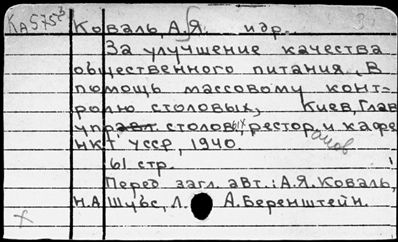 КА575 Коваль, А.Я. идр.
За улучшение качества
общественного питания, В
помощь массовому конт-
ролю столовых, Киев, Глав
управл столовых, рестор анов и кафе
НКТ УССР, 1940.
61 стр.
Перед загл. авт.: А.Я. Коваль,
Н.А Шувс, Л. А. Беренштейн.